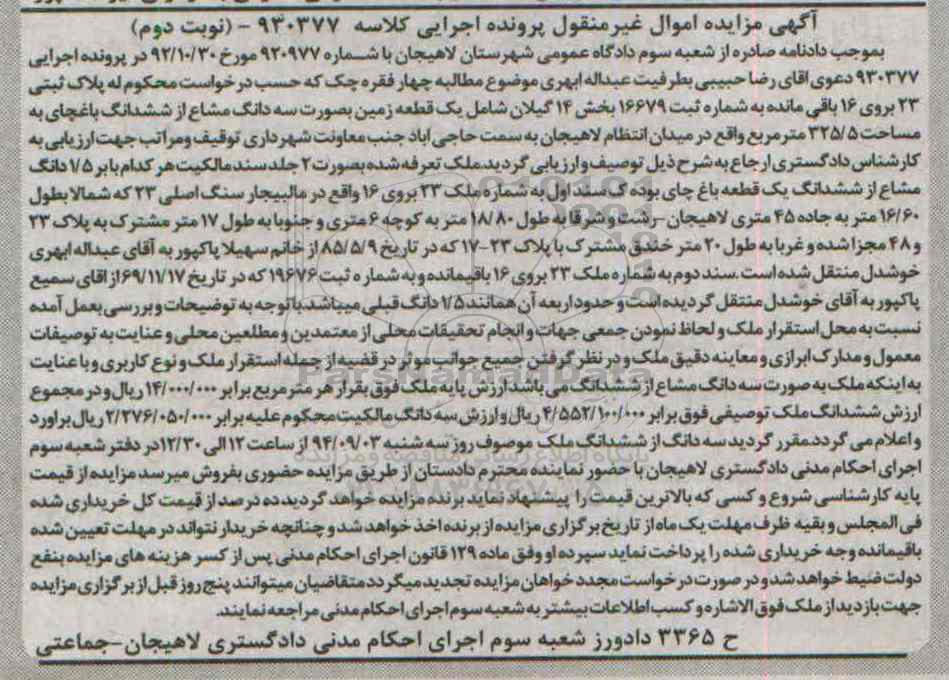 آگهی مزایده اموال غیر منقول پرونده اجرایی کلاسه ۹۳۰۳۷۷ - (نوبت دوم)
بموجب دادنامه صادره از شعبه سوم دادگاه عمومی شهرستان لاهیجان با شماره ۹۲۰۹۷۷ مورخ ۹۲/۱۰/۳۰ در پرونده اجرایی
۹۳۰۳۷۷ دعوی اقای رضا حبیبی بطرفیت عبداله ابهری موضوع مطالبه چهار فقره چک که حسب درخواست محکوم له پلاک ثبتی
۲۳ بروی ۱۶ باقی مانده به شماره ثبت ۱۶۶۷۹ بخش ۱۴ گیلان شامل یک قطعه زمین بصورت سه دانگ مشاع از ششدانگ باغچای به
مساحت ۳۲۵/۵ متر مربع واقع در میدان انتظام لاهیجان به سمت حاجی اباد جنب معاونت شهرداری توقیف ومراتب جهت ارزیابی به
کارشناس دادگستری ارجاع به شرح ذیل توصیف وارزیابی گردید.ملک تعرفه شده بصورت ۲ جلد سند مالکیت هر کدام بابر ۱/۵ دانگ
مشاع از ششدانگ یک قطعه باغ چای بوده ک سند اول به شماره ملک ۲۳ بروی ۱۶ واقع در مالبیجار سنگ اصلی ۲۳ که شمالا بطول
۱۶/۶۰ متر به جاده ۴۵ متری لاهیجان -رشت و شرقا به طول ۱۸/۸۰ متر به کوچه ۶ متری و جنوبا به طول ۱۷ متر مشترک به پلاک ۲۳
و ۴۸ مجزا شده و غربا به طول ۲۰ متر خندق مشترک با پلاک ۲۳-۱۷ که در تاریخ ۸۵/۵/۹ از خانم سهیلا پاکپور به آقای عبداله ابهری
خوشدل منتقل شده است .سند دوم به شماره ملک ۲۳ بروی ۱۶ باقیمانده و به شماره ثبت ۱۹۶۷۶ که در تاریخ ۶۹/۱۱/۱۷ از اقای سمیع
پاکپور به آقای خوشدل منتقل گردیده است و حدود اربعه آن همانند ۱/۵ دانگ قبلی میباشد.با توجه به توضیحات و بررسی بعمل آمده
نسبت به محل استقرار ملک و لحاظ نمودن جمعی جهات و انجام تحقیقات محلی از معتمدین و مطلعین محلی و عنایت به توصیفات
معمول و مدارک ابرازی و معاینه دقیق ملک و در نظر گرفتن جمیع جوانب موثر در قضیه از جمله استقرار ملک و نوع کاربری و با عنایت
به اینکه ملک به صورت سه دانگ مشاع از ششدانگ می باشد ارزش پایه ملک فوق بقرار هر متر مربع برابر ۱۴/۰۰۰/۰۰۰ ریال و در مجموع
ارزش ششدانگ ملک توصیفی فوق برابر ۴/۵۵۲/۱۰۰/۰۰۰ ریال و ارزش سه دانگ مالکیت محکوم علیه برابر ۲/۲۷۶/۰۵۰/۰۰۰ ریال براورد
و اعلام می گردد.مقرر گردید سه دانگ از ششدانگ ملک موصوف روز سه شنبه ۹۴/۰۹/۰۳ از ساعت ۱۲ الی ۱۲/۳۰ در دفتر شعبه سوم
اجرای احکام مدنی دادگستری لاهیجان با حضور نماینده محترم دادستان از طریق مزایده حضوری بفروش میرسد مزایده از قیمت
پایه کارشناسی شروع و کسی که بالاترین قیمت را پیشنهاد نماید برنده مزایده خواهد گردید ده درصد از قیمت کل خریداری شده
فی المجلس و بقیه ظرف مهلت یک ماه از تاریخ برگزاری مزایده از برنده اخذ خواهد شد و چنانچه خریدار نتواند در مهلت تعیین شده
باقیمانده وجه خریداری شده را پرداخت نماید سپرده او وفق ماده ۱۲۹ قانون اجرای احکام مدنی پس از کسر هزینه های مزایده بنفع
دولت ضبط خواهد شد و در صورت درخواست مجدد خواهان مزایده تجدید میگردد متقاضیان میتوانند پنج روز قبل از برگزاری مزایده
جهت بازدید از ملک فوق الاشاره و کسب اطلاعات بیشتر به شعبه سوم اجرای احکام مدنی مراجعه نمایند.
ح ۳۳۶۵ دادورز شعبه سوم اجرای احکام مدنی دادگستری لاهیجان-جماعتی